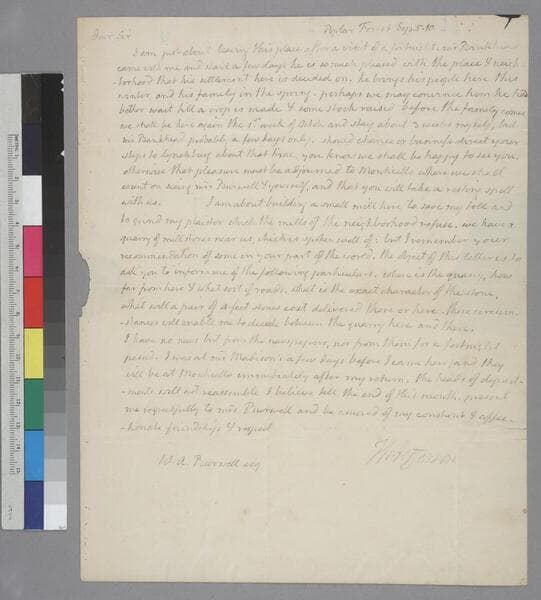 Dear Sir
Poplar Forest Sep. 5. 10.
I am just about leaving this place after a visit of a fortnight. mr Bankhead
came with me and staid a few days. he is so much pleased with the place & neigh-
borhood that his settlement here is decided on. he brings his people here this
winter, and his family in the spring. perhaps we may convince him he had
better wait till a crop is made & some stock raised before the family comes
we shall be here again the 1st week of October and stay about 3 weeks myself, but
mr Bankhead probably a few days only. should chance or business direct your
steps to Lynchburg about that time, you know we shall be happy to see you.
otherwise that pleasure must be adjourned to Monticello where we shall
count on seeing mrs Burwell & yourself, and that you will take a resting spell
with us. I am about building a small mill here to save my toll and
to grind my plaister which the mills of the neighborhood refuse. we have a
quarry of mill stones near us, which is spoken well of: but I remember your
recommendation of some in your part of the world. the object of this letter is to
ask you to inform me of the following particulars. where is the quarry, how
far from here & what sort of roads. what is the exact character of the stone.
what will a pair of feet stones cost delivered there or here. these circum-
stances will enable me to decide between the quarry here and there.
I have no news but from the newspapers, nor from them for a fortnight
past. I was at mr Madison's a few days before I came here, and they
will be at Monticello immediately after my return. the heads of depart-
-ments will not reassemble I believe till the end of this month. present
me respectfully to mrs Burwell and be assured of my constant & affec-
-tionate friendship & respect
Th: Jefferson
W. A. Burwell esq